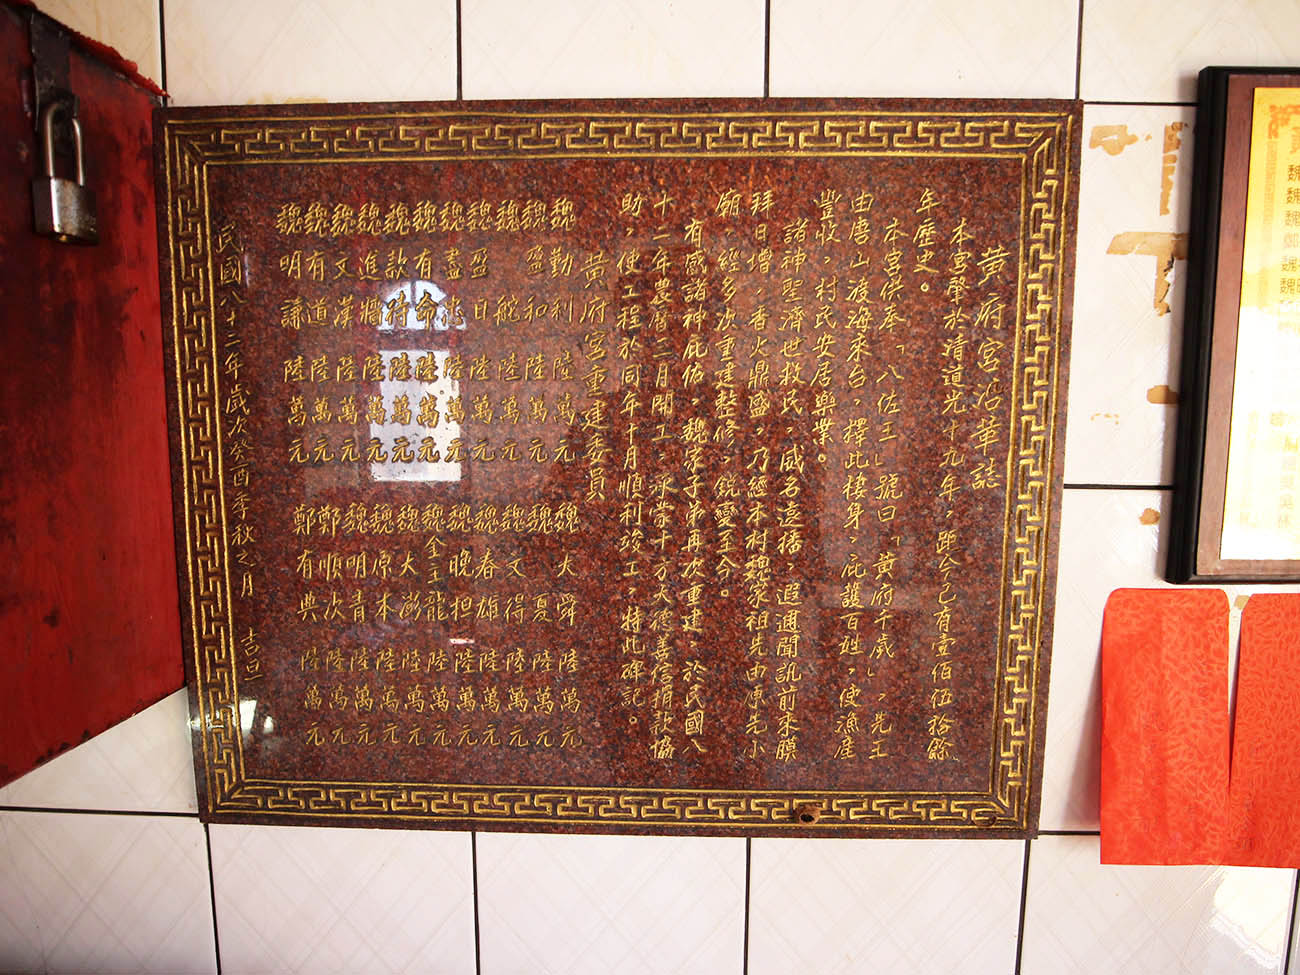 黃府宮沿革誌
本宮肇於清道光十九年，距今已有壹佰伍拾餘
年歷史。
本宮供奉「八佐王」號曰「黃府千歲」，先王
由唐山渡海來台，擇此棲身，庇護百姓，使漁產
豐收，村民安居樂業。
諸神聖濟世救民，威名遠播，遐邇聞訊前來膜
拜日增，香火鼎盛，乃經本村魏家祖先由原先小
廟，經多次重建整修，銳變至今。
有感諸神庇佑，魏家子弟再次重建，於民國八
十二年農曆二月開工，承蒙十方大德善信捐款協
助，使工程於同年十月順利竣工，特此碑記。
黃府宮重建委員
魏勤利 陸萬元 魏大舜 陸萬元
魏盈和 陸萬元 魏夏 陸萬元
魏舵 陸萬元 魏文得 陸萬元
魏盈日 陸萬元 魏春雄 陸萬元
魏盡忠 陸萬元 魏晚担 陸萬元
魏有命 陸萬元 魏金玉龍 陸萬元
魏款待 陸萬元 魏大澎 陸萬元
魏進牆 陸萬元 魏原本 陸萬元
魏文漢 陸萬元 魏明青 陸萬元
魏有道 陸萬元 鄭順次 陸萬元
魏明謙 陸萬元 鄭有典 陸萬元
民國八十二年歲次癸酉季秋之月 吉旦